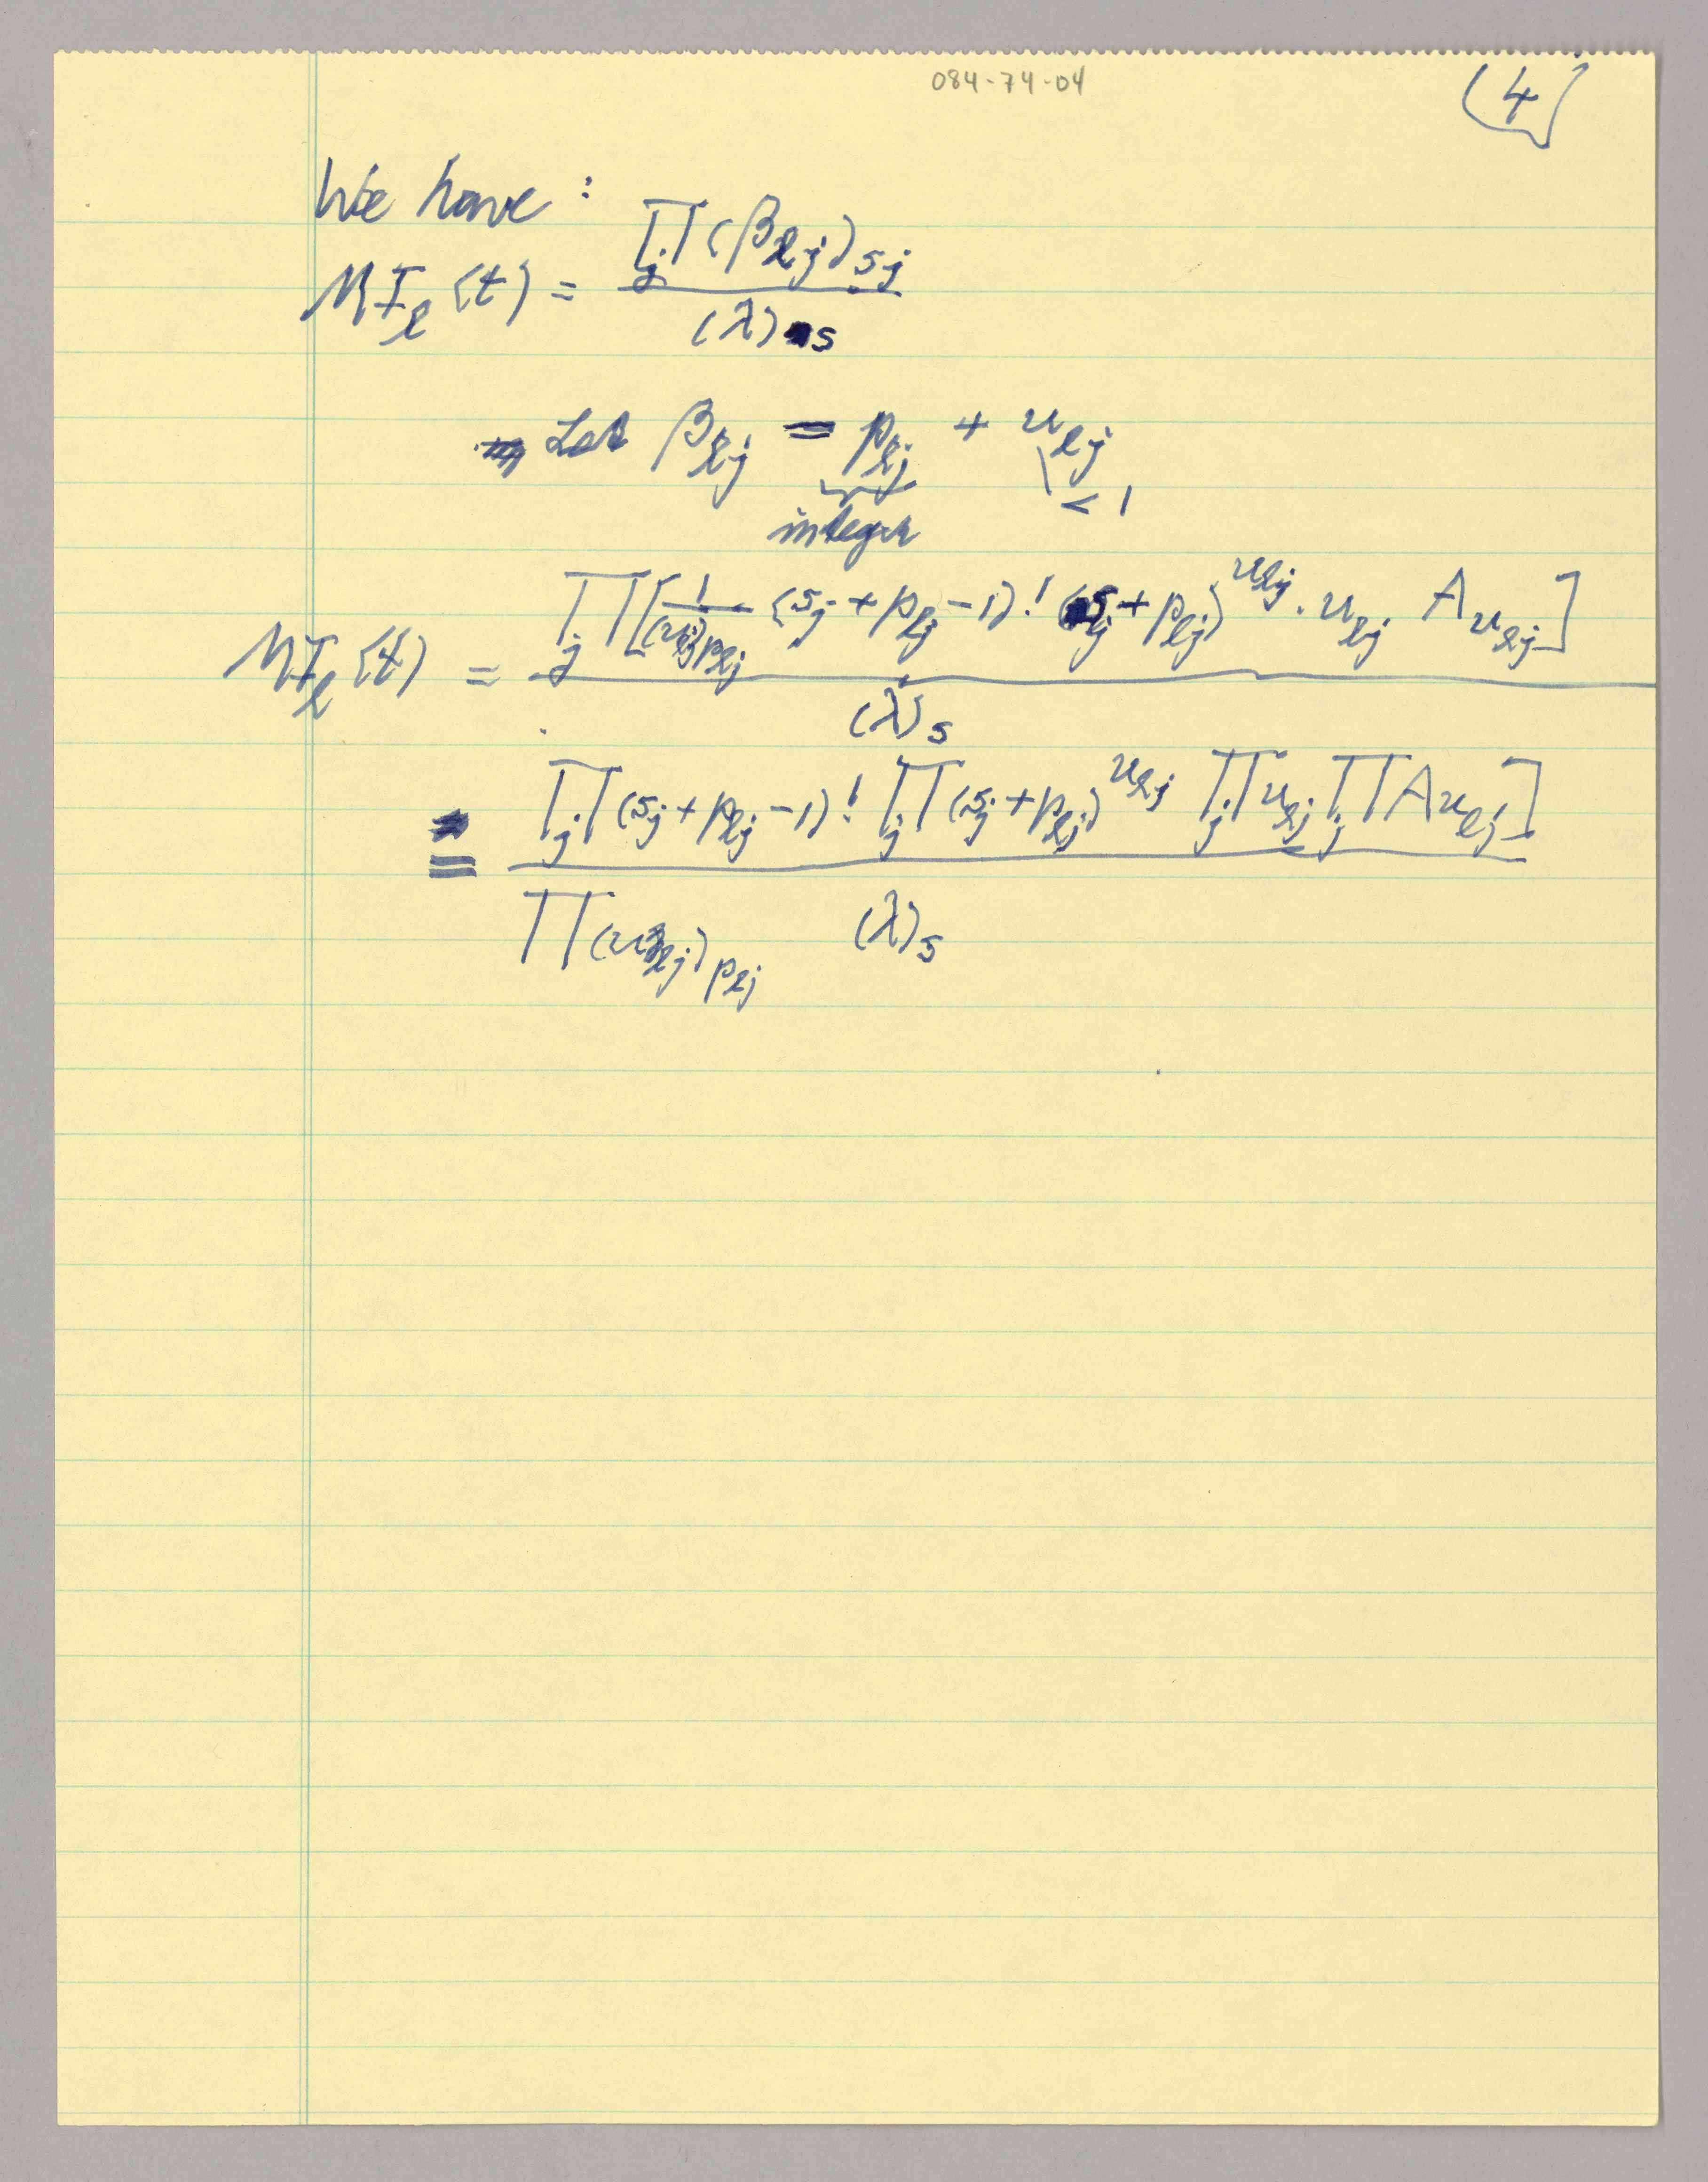 084-74-04
(4)
We have :
MI_ℓ(t) = ∏_j (β_ℓj)_sj / (λ)_s
Let β_ℓj = p_ℓj + u_ℓj
integer < 1
MI_ℓ(t) = ∏_j [ 1/(u_ℓj)_pℓj (s_j + p_ℓj - 1)! (s_j + p_ℓj)^u_ℓj · u_ℓj A_u_ℓj ] / (λ)_s
= ∏_j (s_j + p_ℓj - 1)! ∏_j (s_j + p_ℓj)^u_ℓj ∏_j u_ℓj ∏_j A_u_ℓj ] / ∏ (u_ℓj)_pℓj (λ)_s